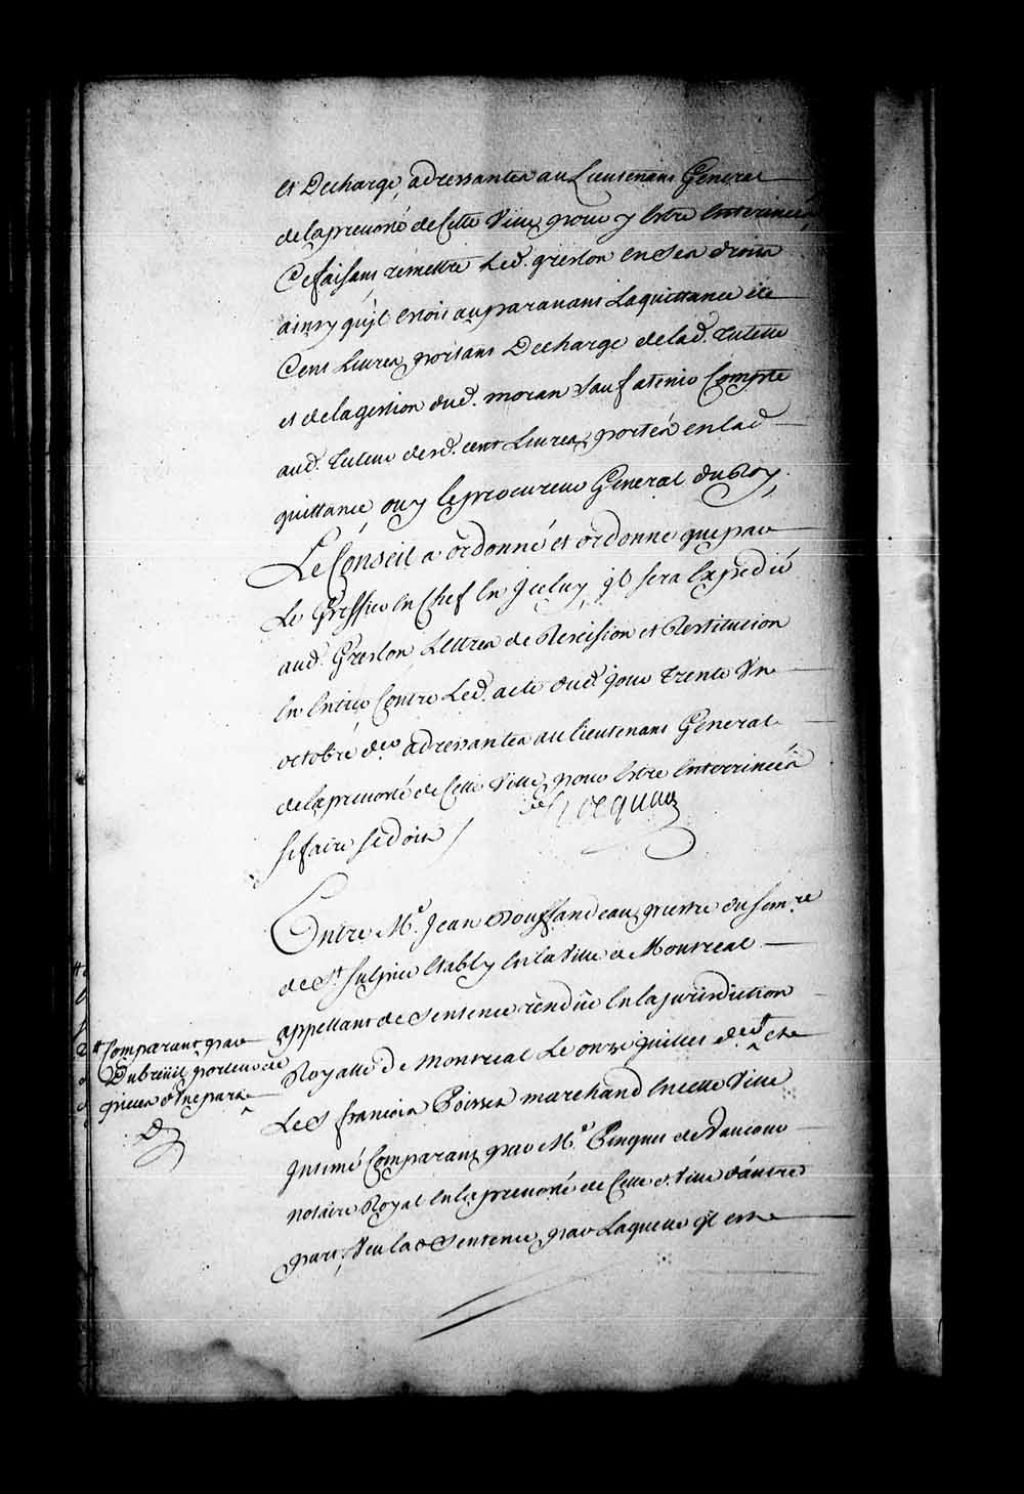 et Decharge, adressantes au Lieutenant General
de la prevoté de Cette Ville pour y Estre Enterinées
Ce faisant, remettre Led. greslon en Ses droits
ainsy qu'jl Estoit auparavant La quittance de
Cent Livres portant Decharge de lad. Tutelle
et de la gestion dud. moran Sauf a tenir Compte
aud. Tuteur desd. cent Livres portés en lad.
quittance, ouy le procureur General du Roy,
Le Conseil a ordonné et ordonne que par
Le Greffier En Chef En Jceluy, jl sera Expedié
aud. Greslon Lettres de Rescision et Restitution
En Entier Contre Led. acte dud. jour Trente Un
octobre der. adressantes au lieutenant General
de la prevoté de Cette Ville, pour Estre Enterinées
Si faire Se doit /
Hocquart
Entre Me. Jean Bouffandeau prestre du Semre
de St Sulpice Etably En la Ville de Montreal
appellant de Sentence rendüe En la jurisdiction
Royalle de Montreal Le onze juillet der. et
# Comparant par
Dubreüil porteur de
pieces d'Une part
Le S francois Poisset marchand En cette Ville
Jntimé Comparant par Me. Pinguet de Vaucour
notaire Royal En la prevoté de Cette d. Ville d'autre
part; Veu lad Sentence par Laquelle jl est